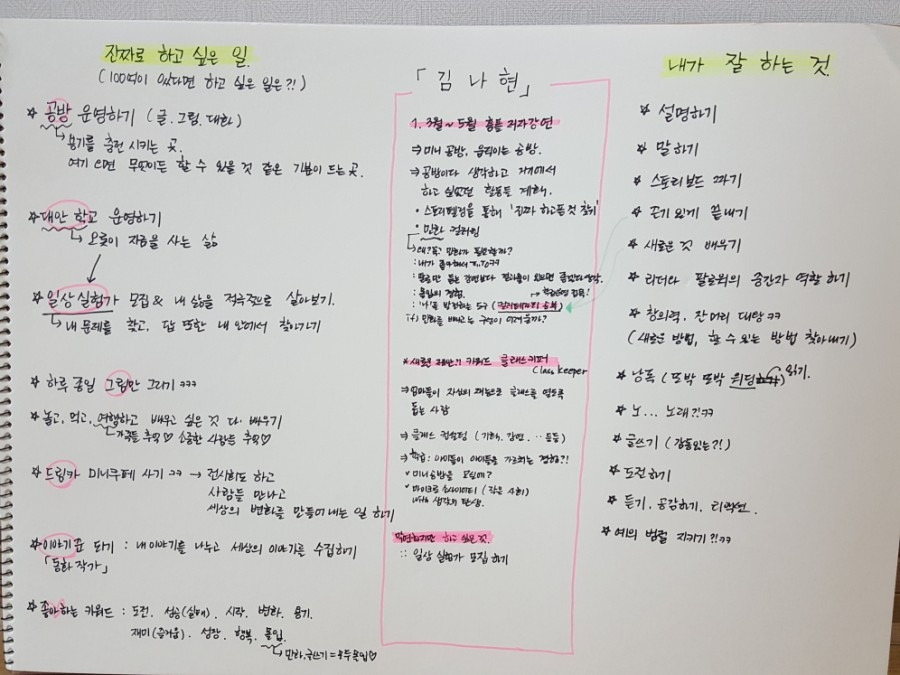 진짜로 하고 싶은 일.
(100억이 있다면 하고 싶은 일은?!)
☆ 공방 운영하기 (글. 그림. 대화)
↳ 용기를 충전 시키는 곳.
여기 오면 무엇이든 할 수 있을 것 같은 기분이 드는 곳.
☆ 대안 학교 운영하기
↳ 오롯이 자신을 사는 삶
☆ 일상 실험가 모집 & 내 삶을 적극적으로 살아보기.
↳ 내 문제를 찾고, 답 또한 내 안에서 찾아가기
☆ 하루 종일 그림만 그리기 ㅋㅋㅋ
☆ 놀고, 먹고, 여행하고 배우고 싶은 것 다 배우기
↳ 가족들 추억♡ 소중한 사람들 추억♡
☆ 드림카 미니쿠페 사기 ㅋㅋ → 전시회도 하고
사람들 만나고
세상의 변화를 만들어 내는 일 하기
☆ 이야기꾼 되기 : 내 이야기를 나누고 세상의 이야기를 수집하기
「동화 작가」
☆ 좋아하는 키워드 : 도전. 성공(실패). 시작. 변화. 용기.
재미(즐거움). 성장. 행복. 몰입.
↳ 만화, 글쓰기 = 모두 몰입♡
「김 나 현」
1. 3월 ~ 5월 저자강연
⇒ 미니 공방, 움직이는 공방.
⇒ 공방이다 생각하고 거기에서
하고 싶었던 활동들 계획.
• 스토리텔링을 통해 '진짜 하고픈 것 찾기'
• 만화 컬러링
↳ 왜? 꼭? 만화가 필요할까?
: 내가 좋아해서 ㅋㅋ
: 몰입의 경험.
if) 만화를 배우고는 구성이 어려울까?
키워드 클래스 키퍼
Class keeper
⇒ 엄마들이 자신의 재능으로 클래스를 열도록
돕는 사람
⇒ 클래스 컨설팅 (기획, 강연 … 등등)
⇒ 학급 : 아이들이 아이들을 가르치는 경험?!
• 미니공방을 모임에?
• 마이크로 소사이어티 (작은 사회)
with 생각의 탄생.
막연하지만 하고 싶은 것
:: 일상 실험가 모집 하기
내가 잘 하는 것
☆ 설명하기
☆ 말 하기
☆ 스토리보드 짜기
☆ 끈기 있게 끝내기
☆ 새로운 것 배우기
☆ 리더와 팔로워의 중간자 역할 하기
☆ 창의력, 잔머리 대장 ㅋㅋ
(새로운 방법, 할 수 있는 방법 찾아내기)
☆ 낭독 (또박 또박 읽기.
☆ 노... 노래?! ㅋㅋ
☆ 글쓰기 (감동있는?!)
☆ 도전하기
☆ 듣기, 공감하기, 리액션.
☆ 예의 범절 지키기?! ㅋㅋ